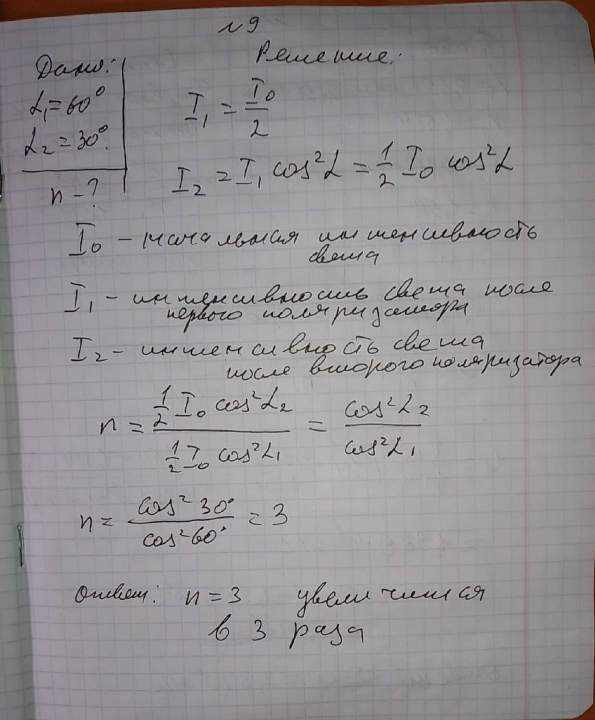 №9
Дано:
α₁=60°
α₂=30°.
n-?
Решение:
I₁ = I₀/2
I₂ = I₁ cos²α = 1/2 I₀ cos²α
I₀ – начальная интенсивность
света
I₁ – интенсивность света после
первого поляризатора
I₂ – интенсивность света
после второго поляризатора
n = (1/2 I₀ cos²α₂)/(1/2 I₀ cos²α₁) = cos²α₂/cos²α₁
n = cos² 30°/cos² 60° = 3
Ответ: n=3 увеличится
в 3 раза